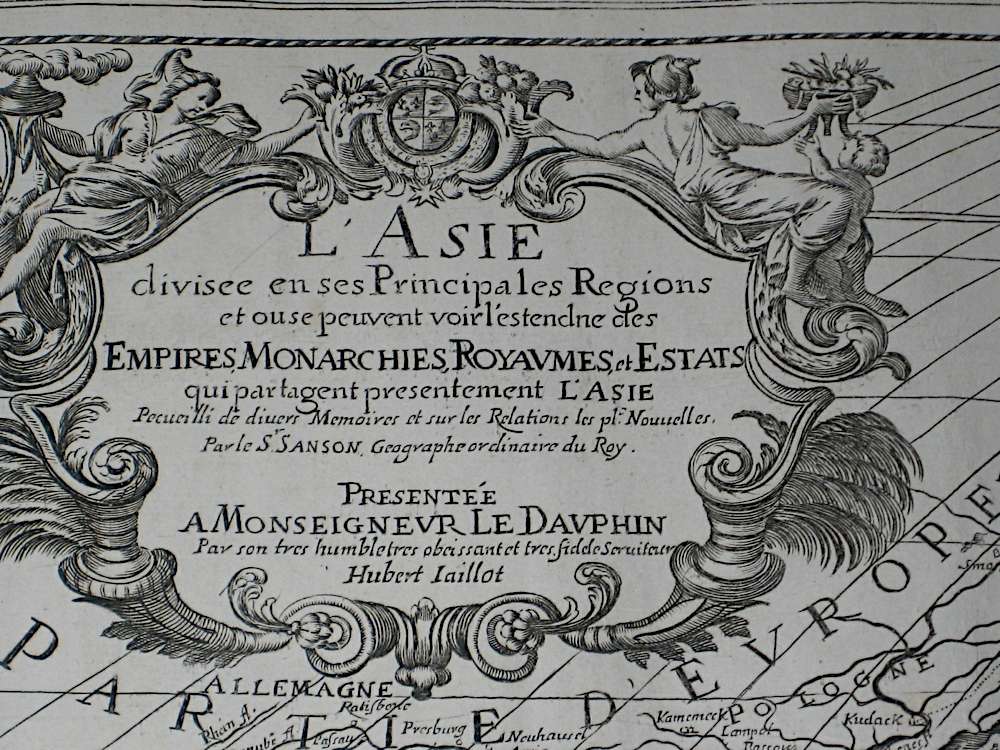 L'ASIE
divisee en ses Principales Regions
et ou se peuvent voir l'estendne des
EMPIRES, MONARCHIES, ROYAVMES, et ESTATS
qui partagent presentement L'ASIE
Recueilli de divers Memoires et sur les Relations les pl.s Nouvelles.
Par le Sr. SANSON, Geographe ordinaire du Roy.
PRESENTÉE
A MONSEIGNEVR LE DAVPHIN
Par son tres humble tres obeissant et tres fidele Serviteur
Hubert Iaillot
PARTIE D'EVROPE
ALLEMAGNE
POLOGNE
Ratisbone
Rhin A.
Passau
Presburg
Neuhausel
Kudack